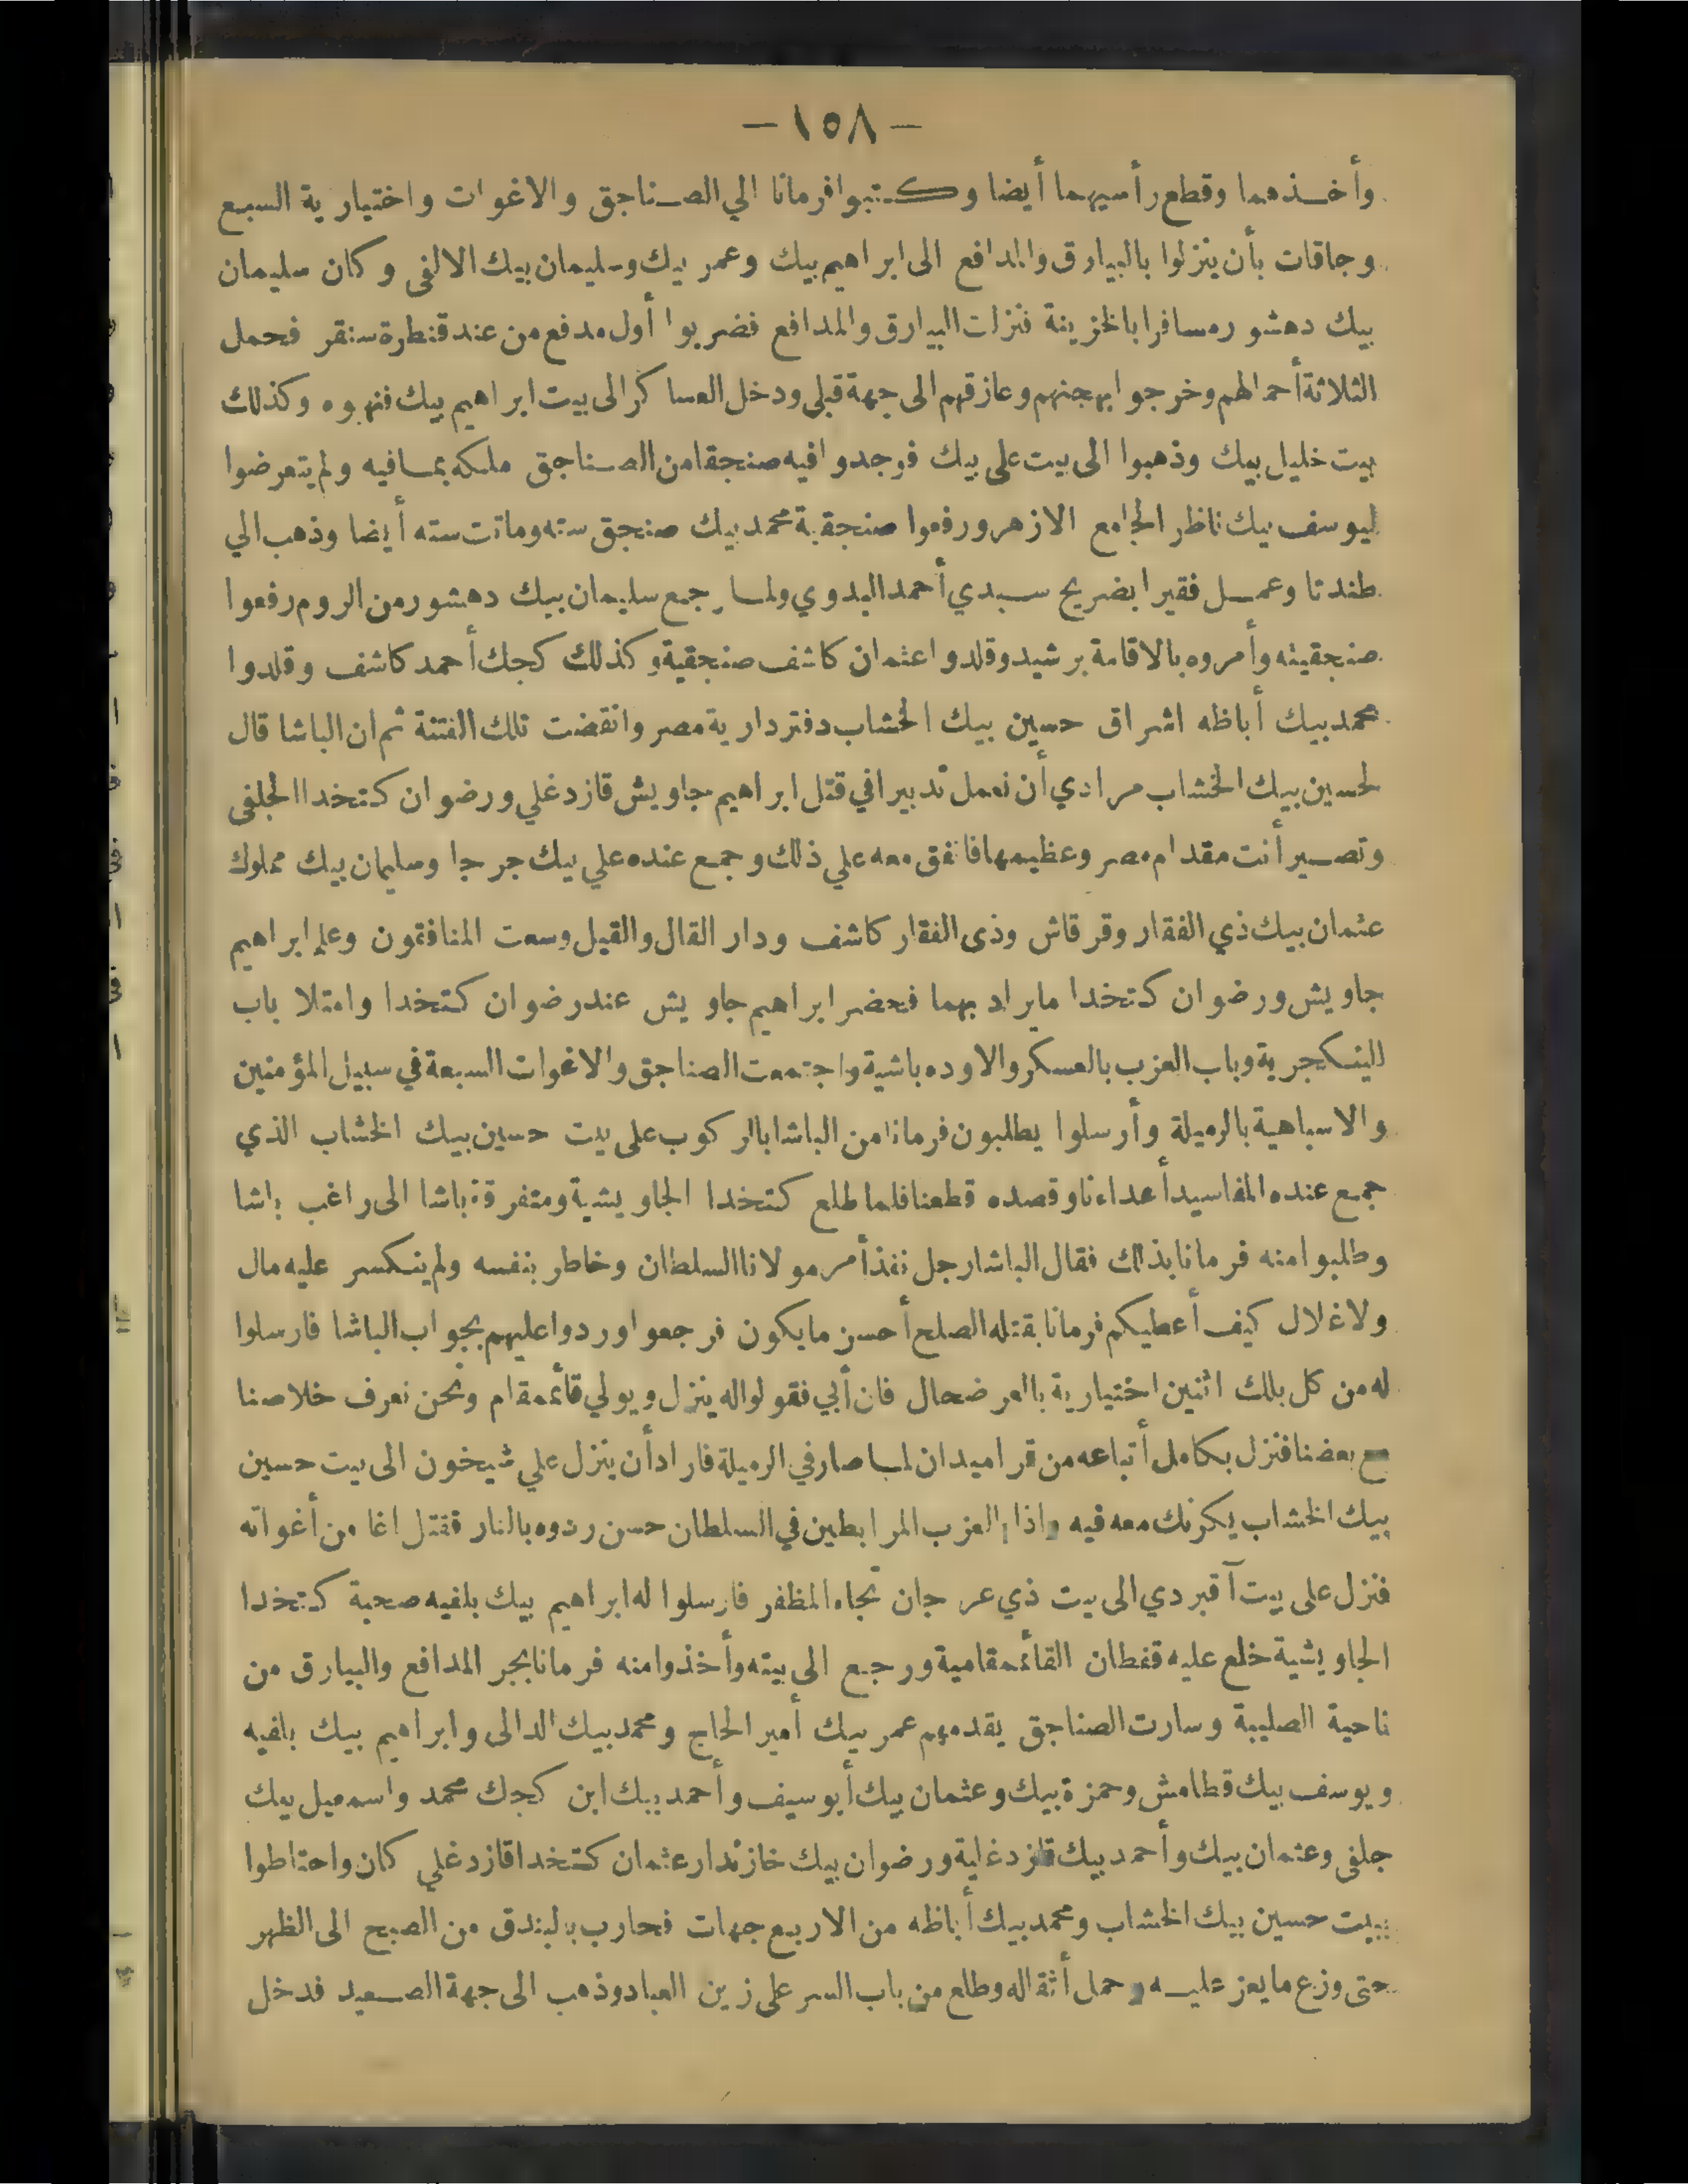 - ١٥٨ -
وأخذهما وقطع رأسيهما أيضا وكتبوا فرمانا الي الصناجق والاغوات واختيارية السبع
وجاقات بأن ينزلوا بالبيارق والمدافع الى ابراهيم بيك وعمر بيك وسليمان بيك الالفى وكان سليمان
بيك دهشور مسافرا بالخزينة فنزلت البيارق والمدافع فضربوا أول مدفع من عند قنطرة سنقر فحمل
الثلاثة أحمالهم وخرجوا بهجنهم وعازقهم الى جهة قبلى ودخل العساكر الى بيت ابراهيم بيك فنهبوه وكذلك
بيت خليل بيك وذهبوا الى بيت على بيك فوجدوا فيه صنجقا من الصناجق ملكه بمافيه ولم يتعرضوا
ليوسف بيك ناظر الجامع الازهر ورفعوا صنجقية محمد بيك صنجق سته وماتت سته أيضا وذهب الي
طندتا وعمل فقيرا بضريح سيدي أحمد البدوي ولما رجع سليمان بيك دهشور من الروم رفعوا
صنجقيته وأمروه بالاقامة برشيد وقلدوا عثمان كاشف صنجقية وكذلك كجك أحمد كاشف وقلدوا
محمد بيك أباظه اشراق حسين بيك الخشاب دفتردارية مصر وانقضت تلك الفتنة ثم ان الباشا قال
لحسين بيك الخشاب مرادي أن نعمل تدبيرا في قتل ابراهيم جاويش قازدغلي ورضوان كتخدا الجلفى
وتصير أنت مقدام مصر وعظيمها فاتفق معه علي ذلك وجمع عنده علي بيك جرجا وسليمان بيك مملوك
عثمان بيك ذي الفقار وقرقاش وذى الفقار كاشف ودار القال والقيل وسعت المنافقون وعلم ابراهيم
جاويش ورضوان كتخدا مايراد بهما فحضر ابراهيم جاويش عند رضوان كتخدا وامتلا باب
الينكجرية وباب العزب بالعسكر والاوده باشية واجتمعت الصناجق والاغوات السبعة في سبيل المؤمنين
والاسباهية بالرميلة وأرسلوا يطلبون فرمانا من الباشا بالركوب على بيت حسين بيك الخشاب الذي
جمع عنده المفاسيد أعداءنا وقصده قطعنا فلما طلع كتخدا الجاويشية ومتفرقة باشا الى راغب باشا
وطلبوا منه فرمانا بذلك فقال الباشا رجل نفذ أمر مولانا السلطان وخاطر بنفسه ولم ينكسر عليه مال
ولا غلال كيف أعطيكم فرمانا بقتله الصلح أحسن مايكون فرجعوا وردوا عليهم بجواب الباشا فارسلوا
له من كل بلك اثنين اختيارية بالعرضحال فان أبي فقولوا له ينزل ويولي قائمقام ونحن نعرف خلاصنا
مع بعضنا فنزل بكامل أتباعه من قراميدان لما صار في الرميلة فاراد أن ينزل علي شيخون الى بيت حسين
بيك الخشاب يكرنك معه فيه واذا بالعزب المرابطين في السلطان حسن ردوه بالنار فقتل اغا من أغواته
فنزل على بيت آقبردي الى بيت ذي عرجان تجاه المظفر فارسلوا له ابراهيم بيك بلفيه صحبة كتخدا
الجاويشية خلع عليه قفطان القائمقامية ورجع الى بيته وأخذوا منه فرمانا بجر المدافع والبيارق من
ناحية الصليبة وسارت الصناجق يقدمهم عمر بيك أمير الحاج ومحمد بيك الدالى وابراهيم بيك بلفيه
ويوسف بيك قطامش وحمزة بيك وعثمان بيك أبوسيف وأحمد بيك ابن كجك محمد واسمعيل بيك
جلفى وعثمان بيك وأحمد بيك قازدغلية ورضوان بيك خازندار عثمان كتخدا قازدغلي كان واحتاطوا
ببيت حسين بيك الخشاب ومحمد بيك أباظه من الاربع جهات فحارب بالبندق من الصبح الى الظهر
حتى وزع مايعز عليه وحمل أثقاله وطلع من باب السر على زين العباد وذهب الى جهة الصعيد فدخل